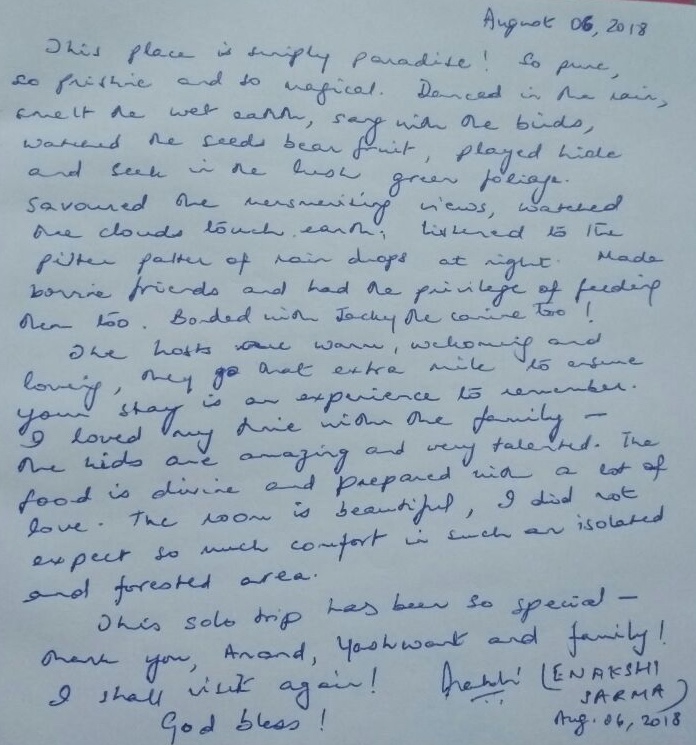 August 06, 2018
This place is simply paradise! So pure,
so pristine and so magical. Danced in the rain,
smelt the wet earth, sang with the birds,
watched the seeds bear fruit, played hide
and seek in the lush green foliage.
Savoured the mesmerising views, watched
the clouds touch earth; listened to the
pitter patter of rain drops at night. Made
bovine friends and had the privilege of feeding
them too. Bonded with Jacky the canine too!
The hosts are warm, welcoming and
loving, they go that extra mile to ensure
your stay is an experience to remember.
I loved my time with the family –
the kids are amazing and very talented. The
food is divine and prepared with a lot of
love. The room is beautiful, I did not
expect so much comfort in such an isolated
and forested area.
This solo trip has been so special –
thank you, Anand, Yashwant and family!
I shall visit again! (ENAKSHI
SARMA)
God bless! Aug. 06, 2018